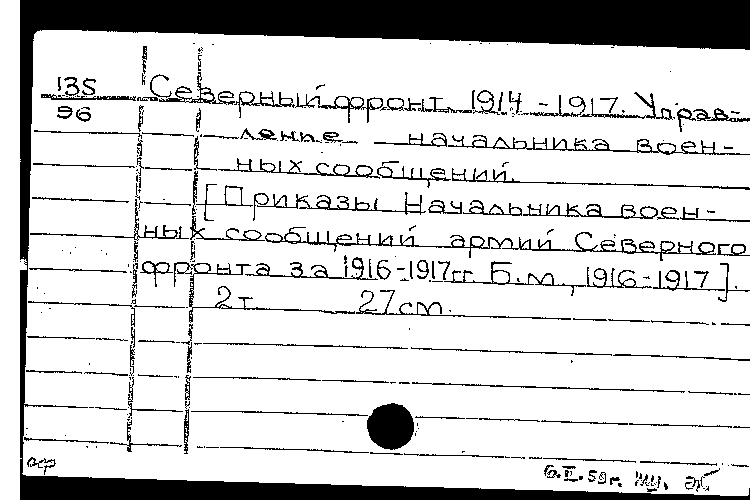 135 Северный фронт. 1914-1917. Управ-
96
ление начальника воен-
ных сообщений.
[Приказы Начальника воен-
ных сообщений армий Северного
фронта за 1916-1917гг. Б.м., 1916-1917].
2т. 27см.
6.II.59г.